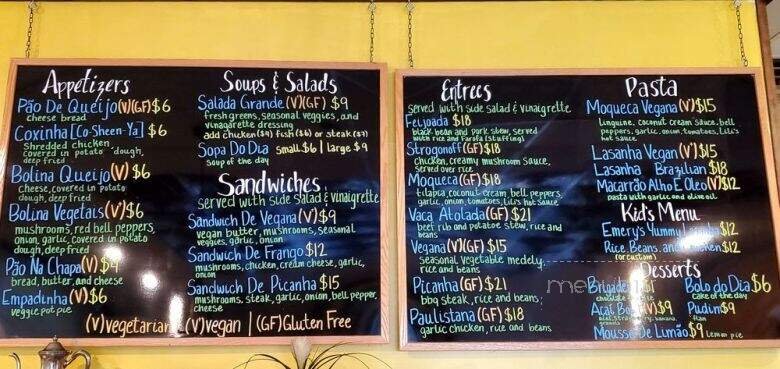 Appetizers
Pão De Queijo (V)(GF) $6
Cheese bread
Coxinha [Co-Sheen-Ya] $6
Shredded chicken
covered in potato dough,
deep fried
Bolina Queijo (V) $6
cheese, covered in potato
dough, deep fried
Bolina Vegetais (V) $6
mushrooms, red bell peppers,
onion, garlic, covered in potato
dough, deep fried
Pão Na Chapa (V) $4
bread, butter, and cheese
Empadinha (V) $6
veggie pot pie
Soups & Salads
Salada Grande (V)(GF) $9
fresh greens, seasonal veggies, and
vinagarette dressing
add chicken ($4) fish ($6) or steak ($7)
Sopa Do Dia small $6 | large $9
soup of the day
Sandwiches
served with side salad & vinaigrette
Sandwich De Vegana (V) $9
vegan butter, mushrooms, seasonal
veggies, garlic, onion
Sandwich De Frango $12
mushrooms, chicken, cream cheese, garlic,
onion
Sandwich De Picanha $15
mushrooms, steak, garlic, onion, bell pepper,
cheese
(V) vegetarian (V) vegan | (GF) Gluten Free
Entrees
served with side salad & vinaigrette
Feijoada $18
black bean and pork stew, served
with rice and farofa (stuffing)
Strogonoff (GF) $18
chicken, creamy mushroom sauce,
served over rice
Moqueca (GF) $18
tilapia, coconut cream, bell peppers,
garlic, onion, tomatoes, Lili's hot sauce
Vaca Atolada (GF) $21
beef rib and potatoe stew, rice and
beans
Vegana (V)(GF) $15
seasonal vegetable medely,
rice and beans
Picanha (GF) $21
bbq steak, rice and beans,
Paulistana (GF) $18
garlic chicken, rice and beans
Pasta
Moqueca Vegana (V) $15
Linguine, coconut cream sauce, bell
peppers, garlic, onion, tomatoes, Lili's
hot sauce
Lasanha Vegan (V) $15
Lasanha Brazilian $18
Macarrão Alho E Oleo (V) $12
pasta with garlic and olive oil
Kid's Menu
Emery's Yummy $12
Rice, Beans, and $12
(or custom)
Desserts
$1
Açaí (V) $9
banana,
Mousse De Limão $9 Lemon pie
Bolo do Dia $6
cake of the day
Pudim $9
flan